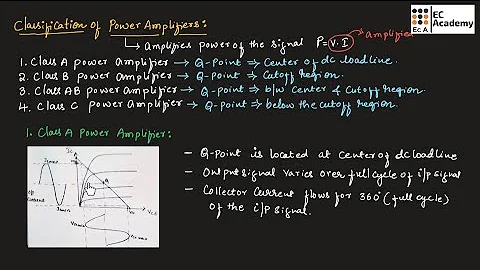 Classification of Power Amplifiers:
EC
Academy
EC A
↳ Amplifies power of the signal P = V.I → amplified
1. Class A power amplifier → Q-Point ⇒ Center of dc load line.
2. Class B power Amplifier → Q-point ⇒ Cutoff region.
3. Class AB power Amplifier → Q-point ⇒ b/w Center & Cutoff Region.
4. Class C power Amplifier → Q-point ⇒ below the cutoff region.
1. Class A Power Amplifier:
- Q-Point is located at center of dc load line
- Output signal varies over full cycle of i/p signal
- Collector Current flows for 360° (full cycle)
of the i/p signal.
Q
VCE